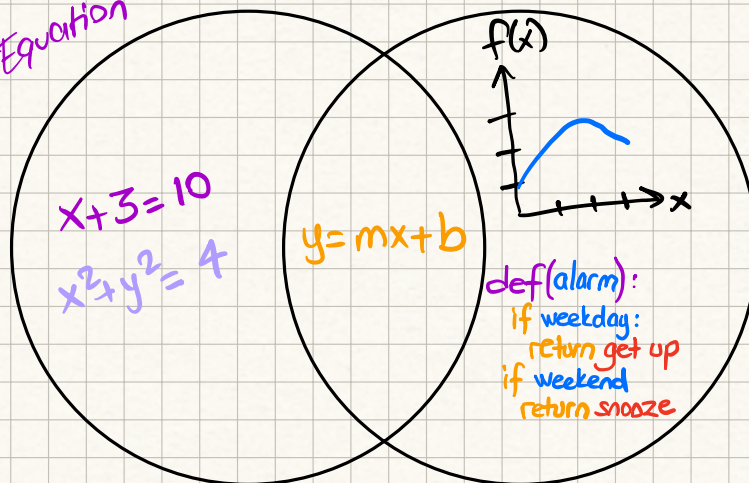 Equation
x+3=10
x²+y²=4
y=mx+b
f(x)
x
def(alarm):
if weekday:
return get up
if weekend
return snooze